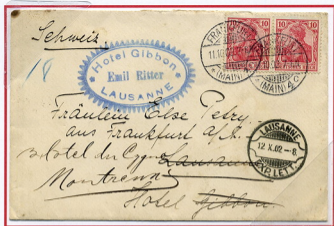 Schweiz
Hotel Gibbon
Emil Ritter
LAUSANNE
10
10
FRANKFURT
(MAIN)
(MAIN)
Fräulein Else Petry
aus Frankfurt a/M.
Hotel du Cygne
Lausanne
Montreux
Hotel Gibbon
LAUSANNE
12.X.02
EXP. LETT.